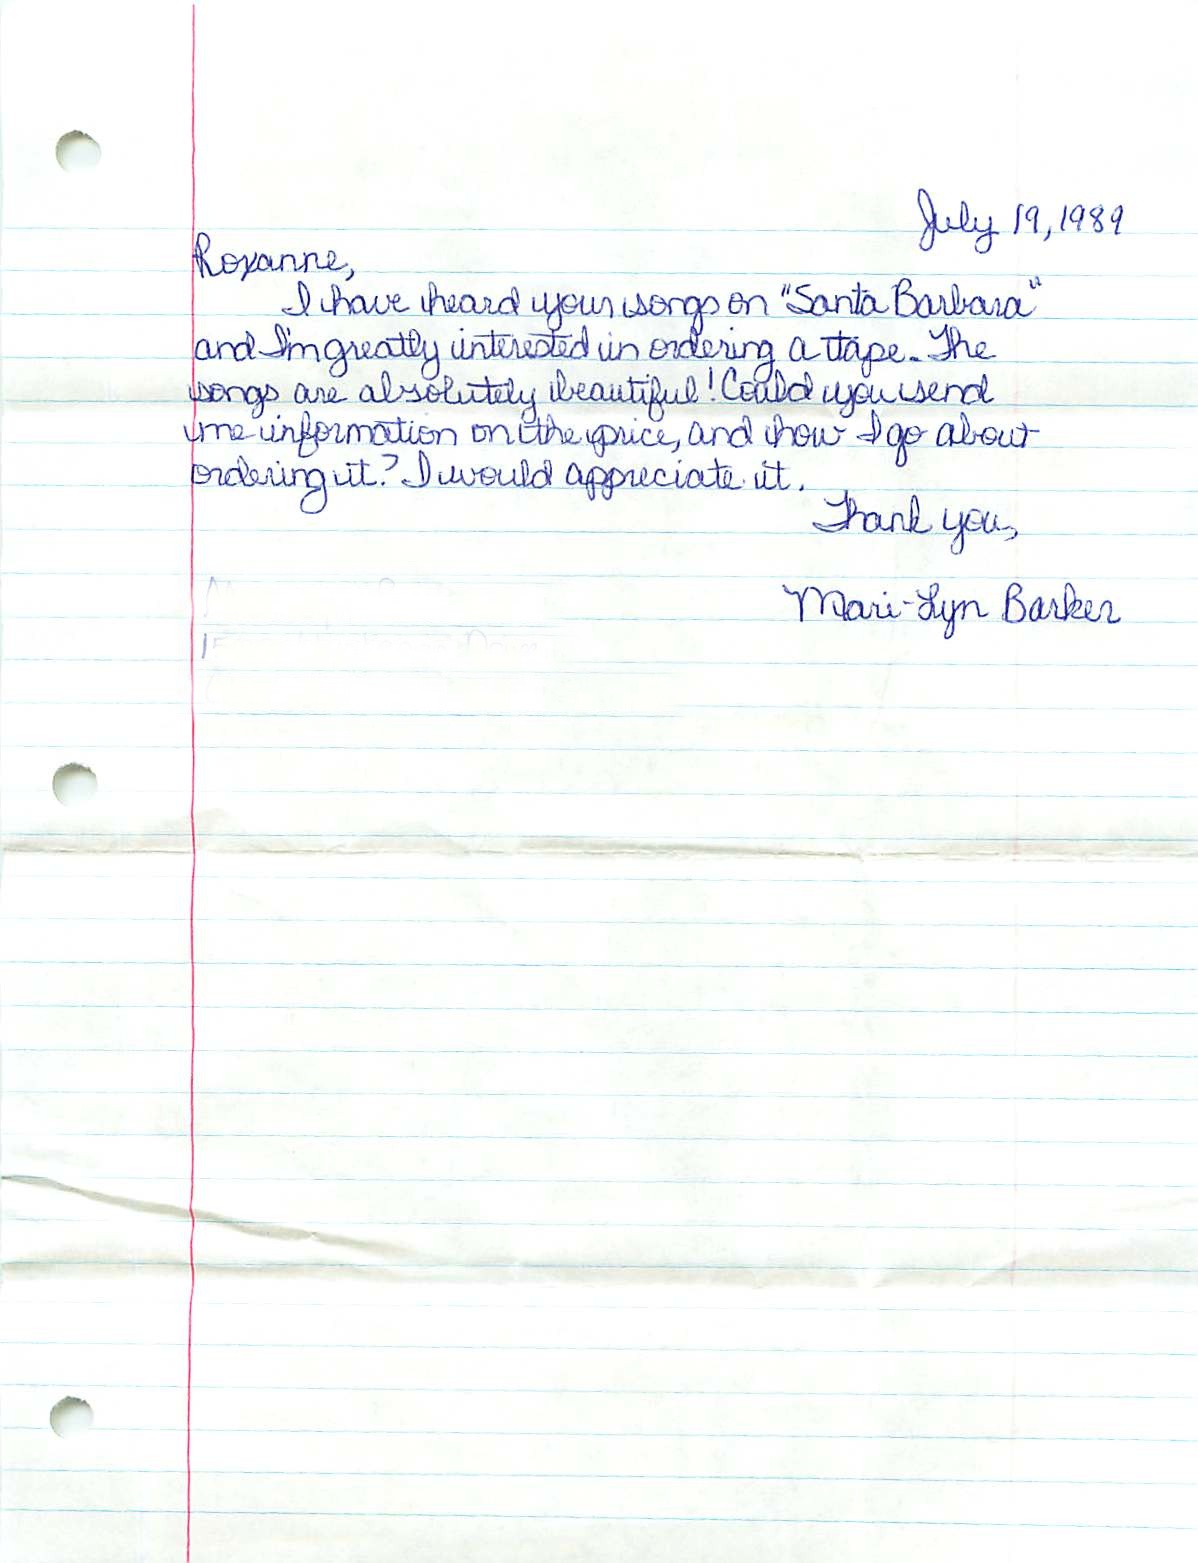 July 19, 1989
Roxanne,
I have heard your songs on "Santa Barbara"
and I'm greatly interested in ordering a tape. The
songs are absolutely beautiful! Could you send
me information on the price, and how I go about
ordering it? I would appreciate it.
Thank you,
Mari-Lyn Barker